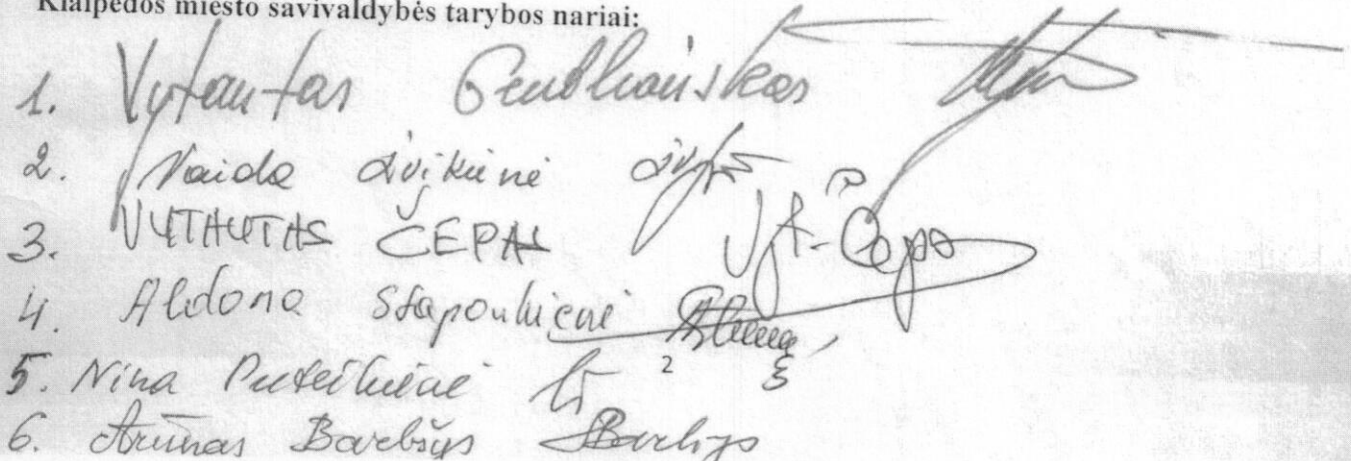 Klaipėdos miesto savivaldybės tarybos nariai:
1. Vytautas
2. Vaida Žvikienė
3. VYTAUTAS ČEPAS Vyt. Čepas
4. Aldona Staponkienė
5. Nina Puteikienė
2
6. Arūnas Barbšys Barbšys